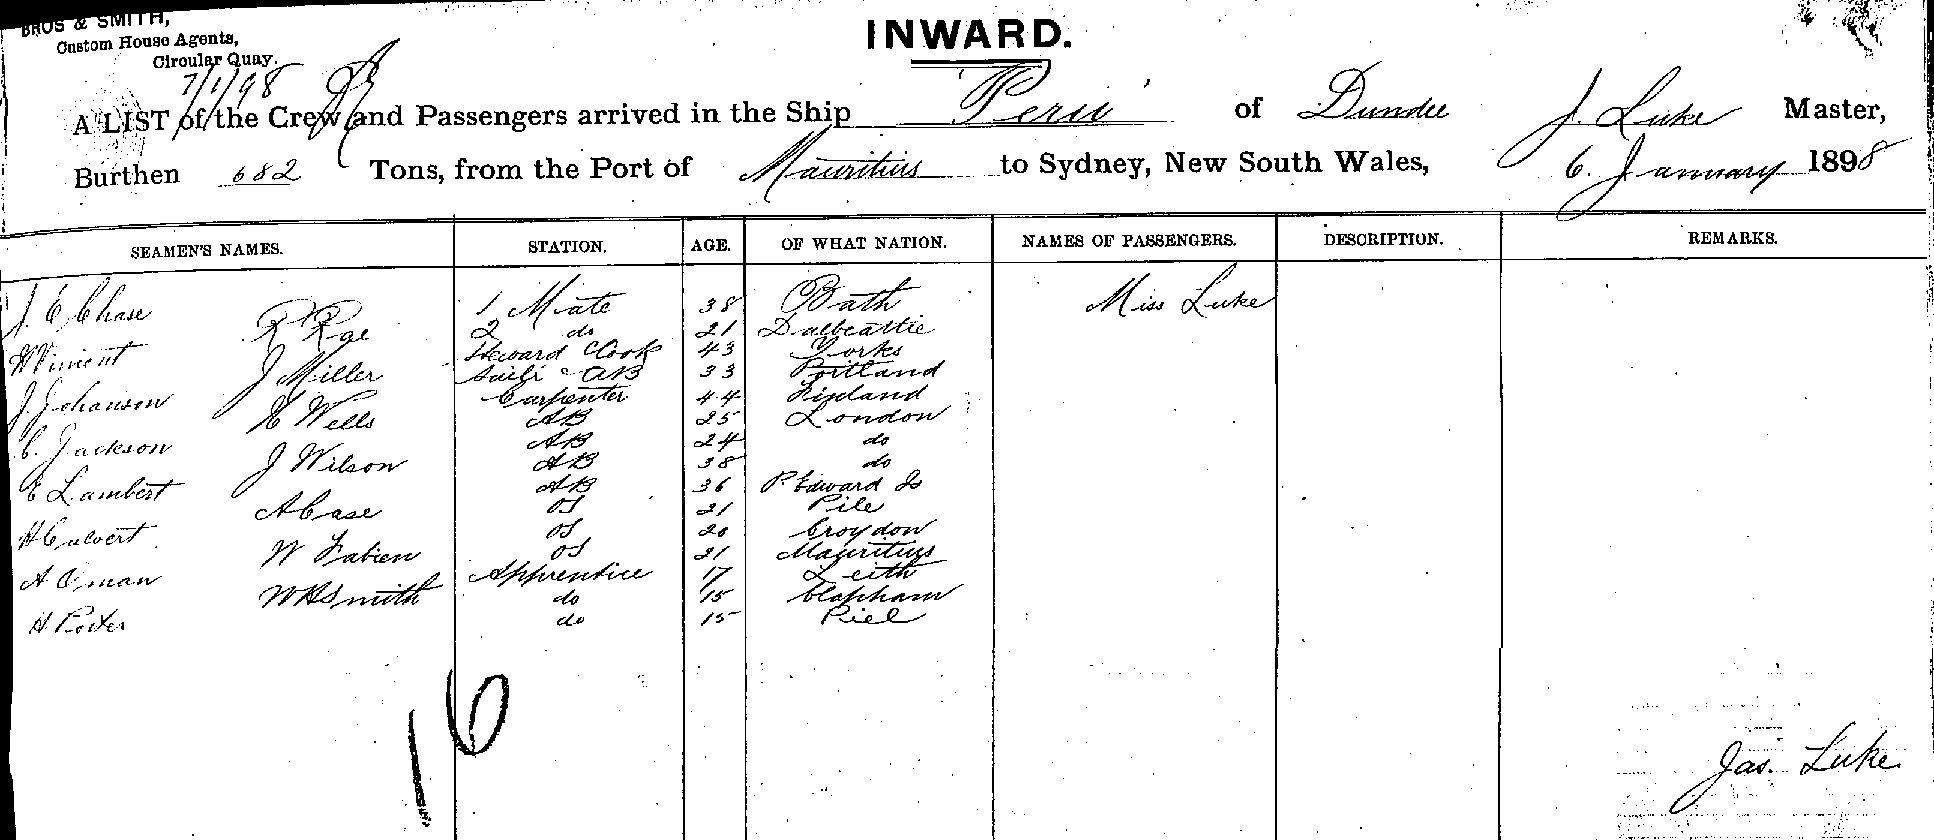 BROS & SMITH,
Custom House Agents,
Circular Quay.
7/1/98
INWARD.
A LIST of the Crew and Passengers arrived in the Ship "Peru" of Dundee J. Luke Master,
Burthen 682 Tons, from the Port of Mauritius to Sydney, New South Wales, 6. January 1898
SEAMEN'S NAMES. STATION. AGE. OF WHAT NATION. NAMES OF PASSENGERS. DESCRIPTION. REMARKS.
J. E Chase 1 Mate 38 Bath Miss Luke
R Rae 2 do 21 Dalbeattie
H Viment Steward & Cook 43 Yorks
J Miller Sailr & AB 33 Portland
J Johanson Carpenter 44 Finland
H Wells AB 25 London
C. Jackson AB 24 do
J Wilson AB 38 do
E Lambert AB 36 P. Edward Is
A Case OS 21 Pile
H Calvert OS 20 Croydon
W Fabien OS 21 Mauritius
A Oman Apprentice 17 Leith
W H Smith do 15 Clapham
H Porter do 15 Piel
16
Jas. Luke